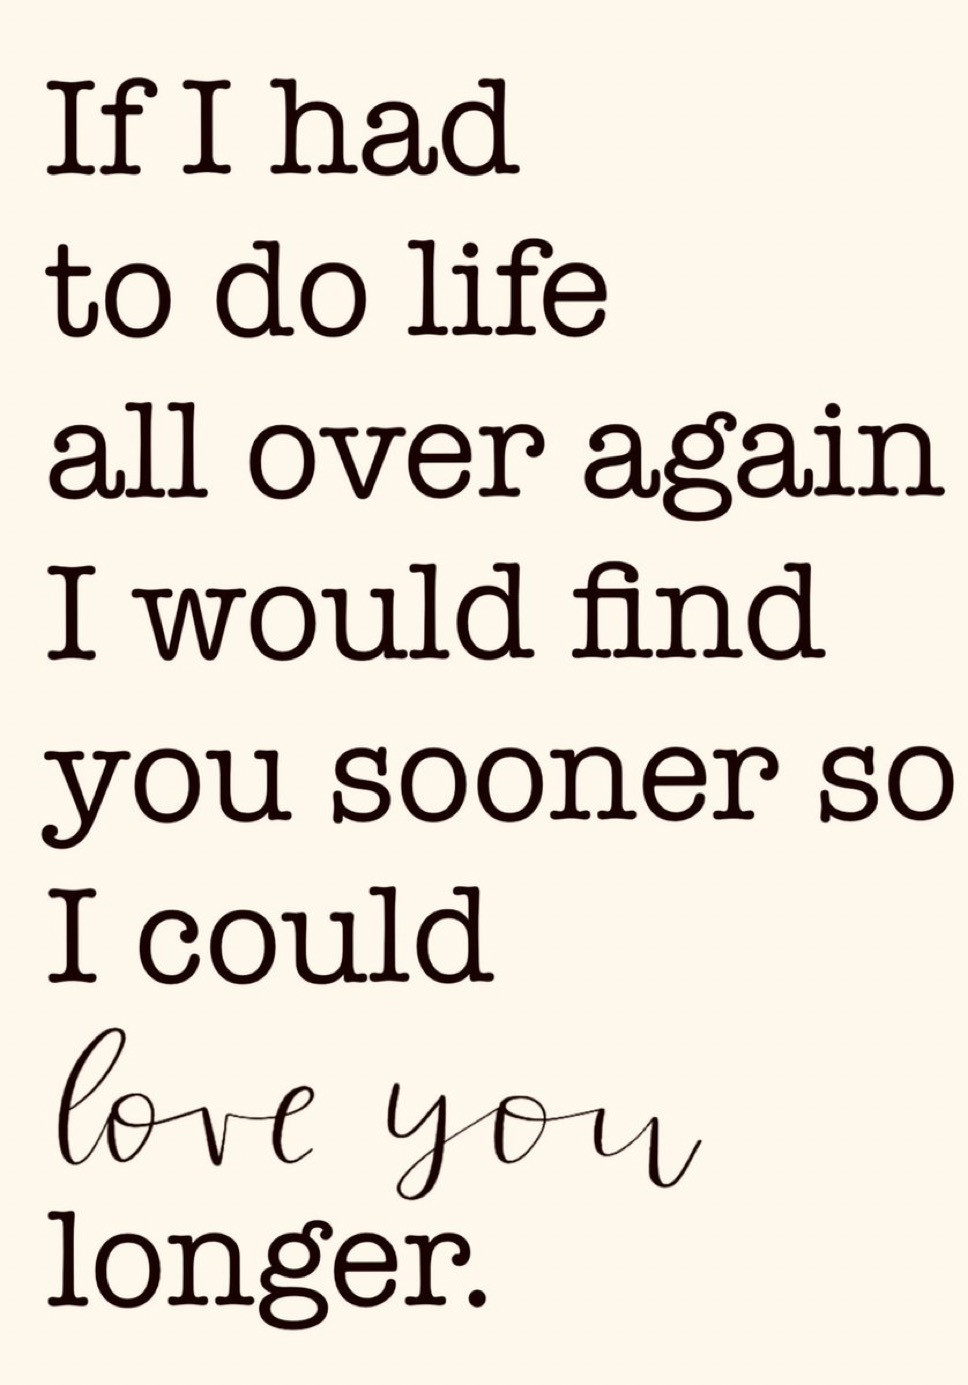 If I had
to do life
all over again
I would find
you sooner so
I could
love you
longer.